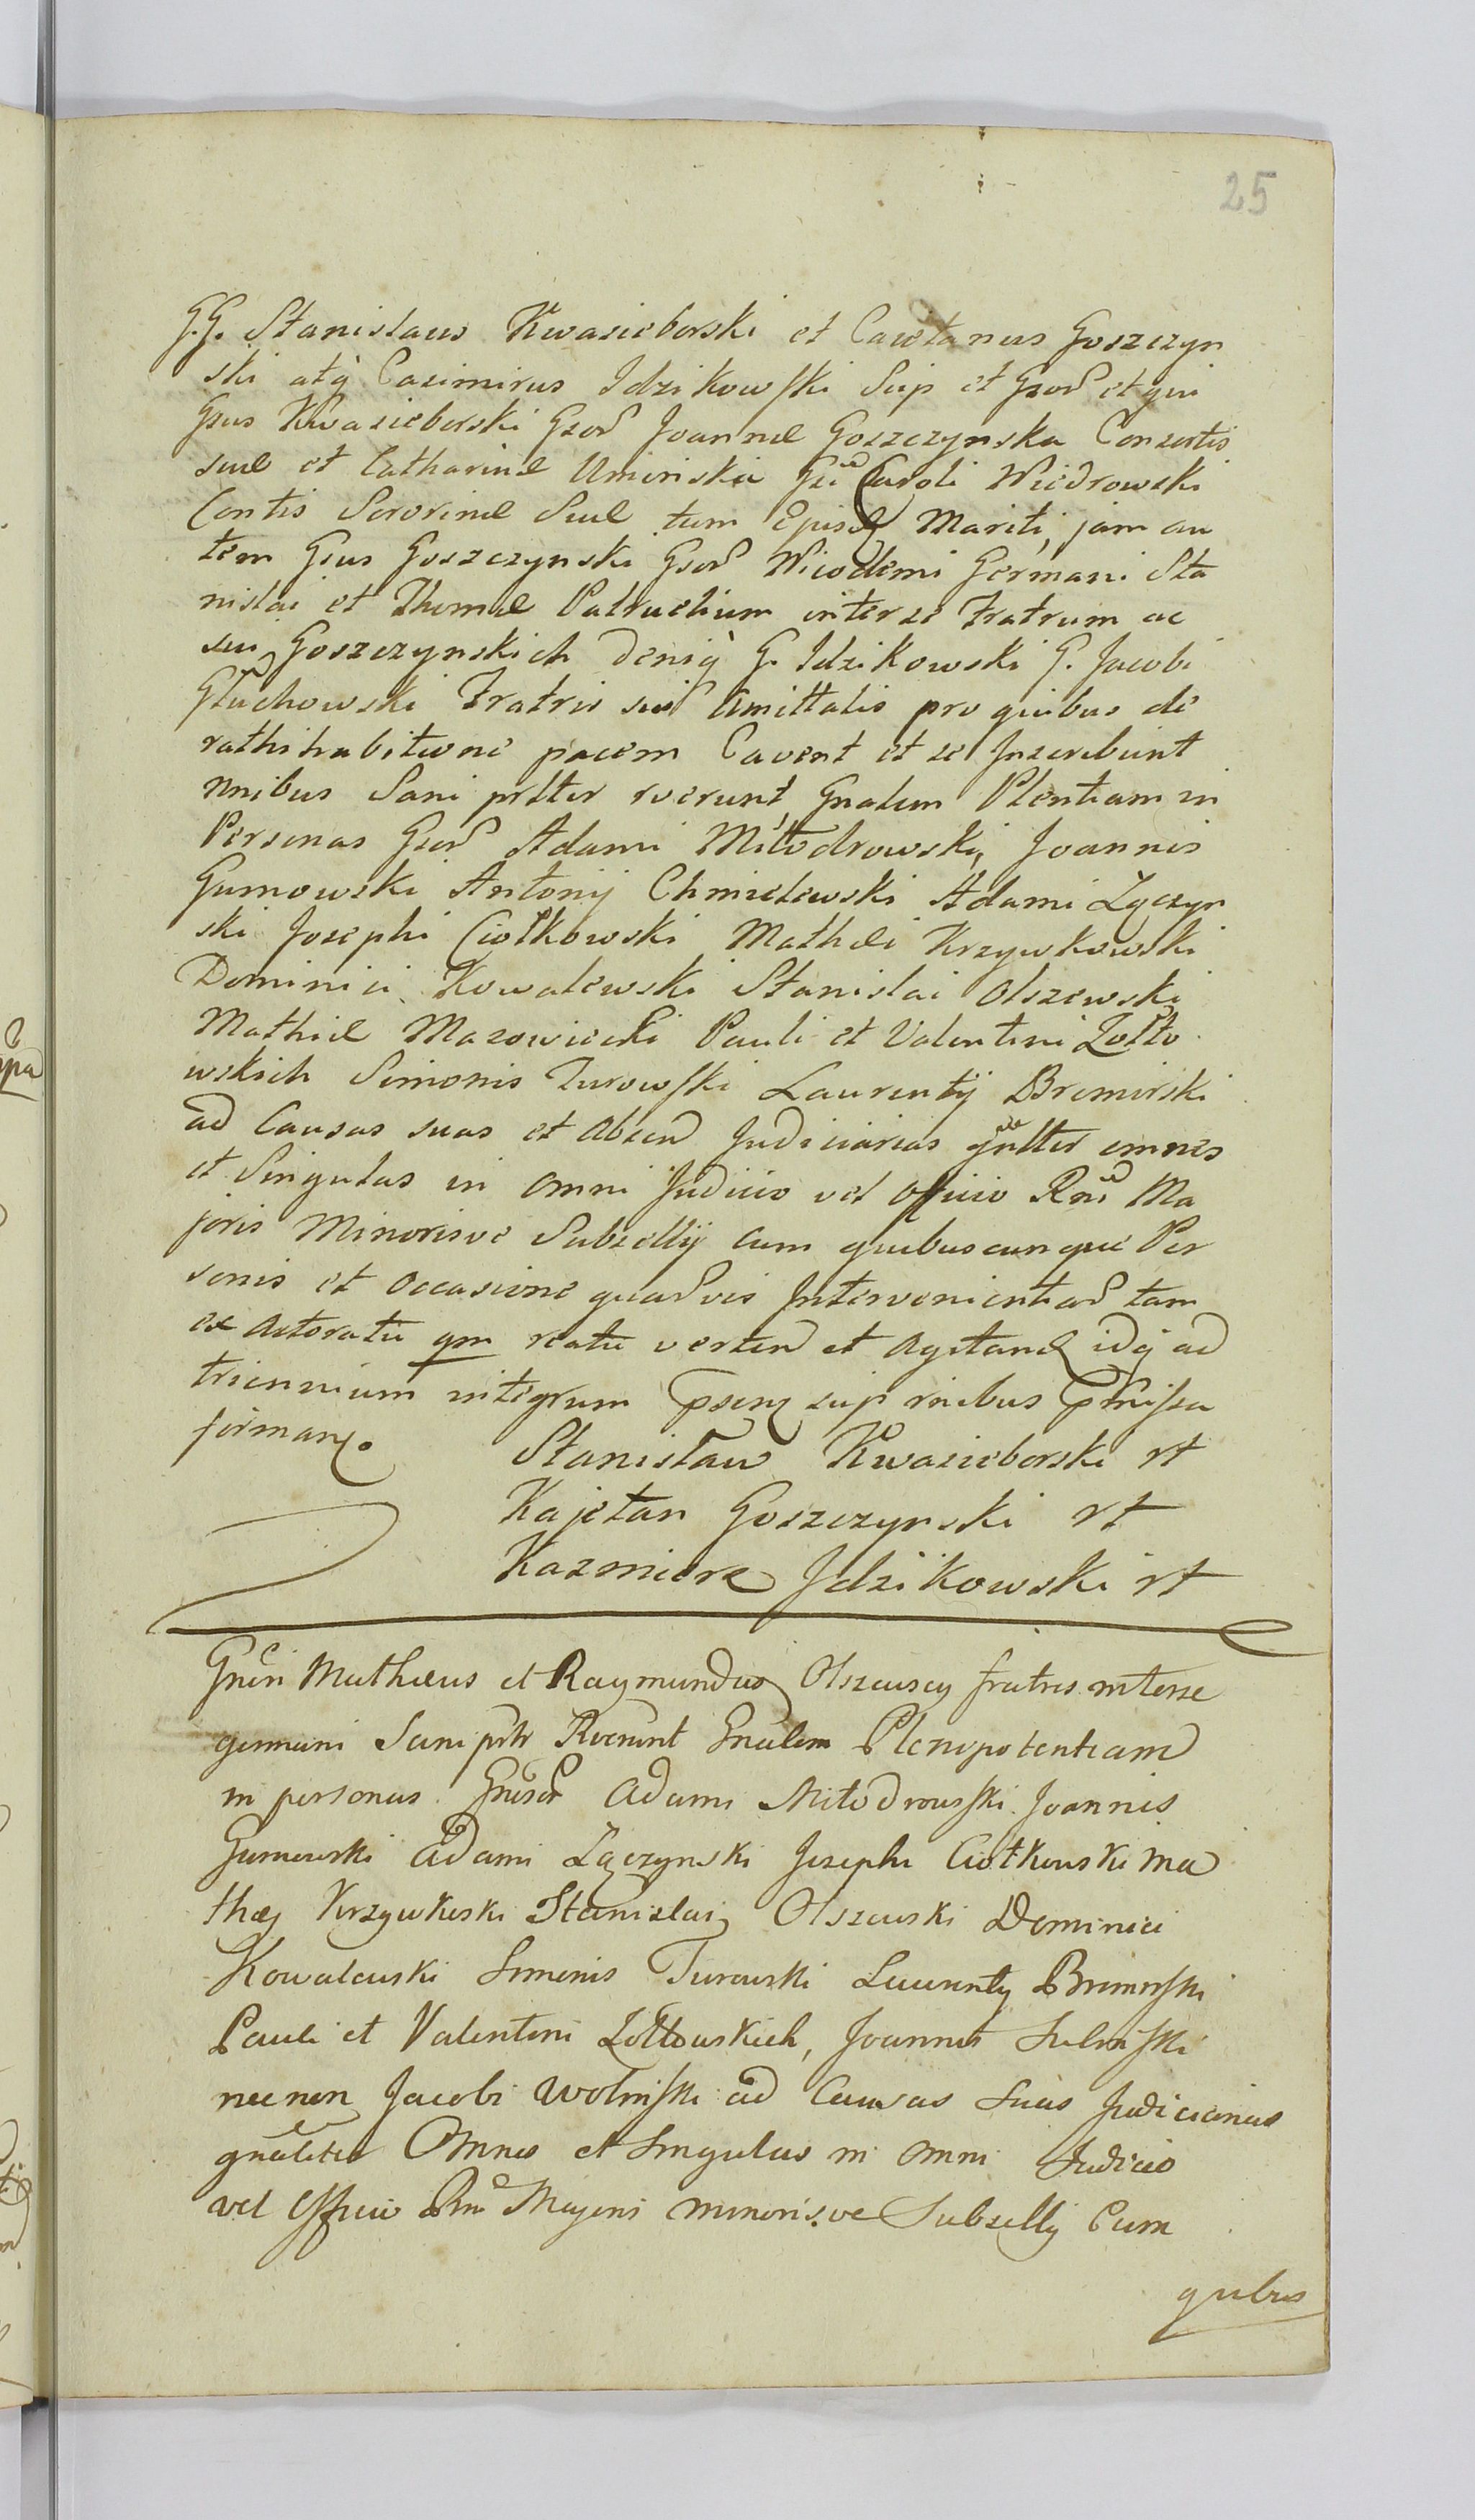 25
G.G. Stanislaus Kwasieborski et Caietanus Goszczyn
ski atq̀ Casimirus Idzikowski Suip et Gsor et qui
Gsus Kwasieborski Gsor Joannæ Goszczynska Consortis
suæ et Catharinæ Uminska Gsi Caroli Wiedrowski
Contis Sororinæ Suæ tum Mariti, jam au
tem Gsus Goszczynski Gsor Nicodemi Germani Sta
nislai et Thomæ Patruelium inter se Fratrum ac
sui Goszczynskich deniq̀ G. Idzikowski G. Jacobi
Głuchowski Fratris sui Amittalis pro quibus de
rathihabitione pacem Cavent et se Inscribunt
nnibus Sani prltter rverunt Gnalem Plentiam in
Personas Gsor Adami Miłodrowski, Joannis
Gumowski Antonij Chmielewski Adami Łączyn
ski Josephi Ciołkowski Mathæi Krzywkowski
Dominici Kowalewski Stanislai Olszewski
Mathiæ Mazowiecki Pauli et Valentini Żołto
wskich Simonis Turowski Laurentij Bromirski
ad Causas suas et Absen Judiciarias gnltter omnes
et Singulas in omni Judicio vel officio Rni Ma
joris Minorisve Subsellij cum quibuscunque Per
sonis et occasione quarvis Intervenientiar tam
ex Actoratu qm reatu verten et Agitan idq̀ ad
triennium integrum psen suip rnibus pmissa
firman.
Stanisław Kwasieborski rt
Kajetan Goszczynski rt
Kazmierz Jdzikowski rt
Gneri Mathæus et Raymundus Olszewscy fratres interse
germani Sani prltr Rverunt Gnalem Plenipotentiam
in personas Gnesor Adami Miłodrowski Joannis
Gumowski Adami Łączynski Josephi Ciołkowski Ma
thæj Krzywkoski Stanislai Olszewski Dominici
Kowalewski Simonis Turowski Laurentij Bromirski
Pauli et Valentini Żołtowskich, Joannis
necnon Jacobi Wolinski ad Causas Suas Judiciarias
gnaliter Omnes et Singulas in omni Judicio
vel Officio Rni Majoris minoris.ve Subsellij Cum
quibus